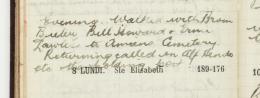 Evening. Walked with Brom
Butler Bill Howard & Ernie
Lawless to Amiens Cemetery.
Returning called in Alf Hends
etc
8 LUNDI. Ste Elizabeth 189-176
10